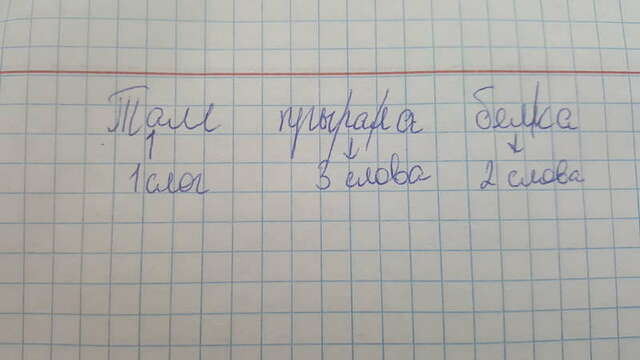 Там прыгала белка
1 слог 3 слова 2 слова